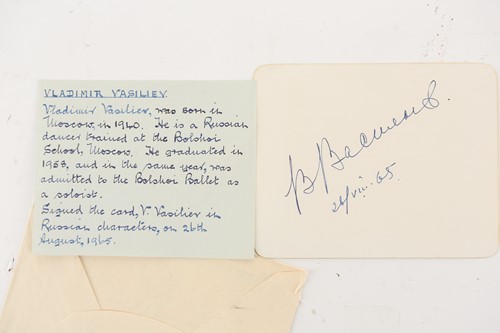 VLADIMIR VASILIEV.
Vladimir Vasiliev, was born in
Moscow, in 1940. He is a Russian
dancer trained at the Bolshoi
School, Moscow. He graduated in
1958, and in the same year, was
admitted to the Bolshoi Ballet as
a soloist.
Signed the card, V. Vasiliev in
Russian characters, on 26th
August, 1965.
В Васильев.
26/viii-65.